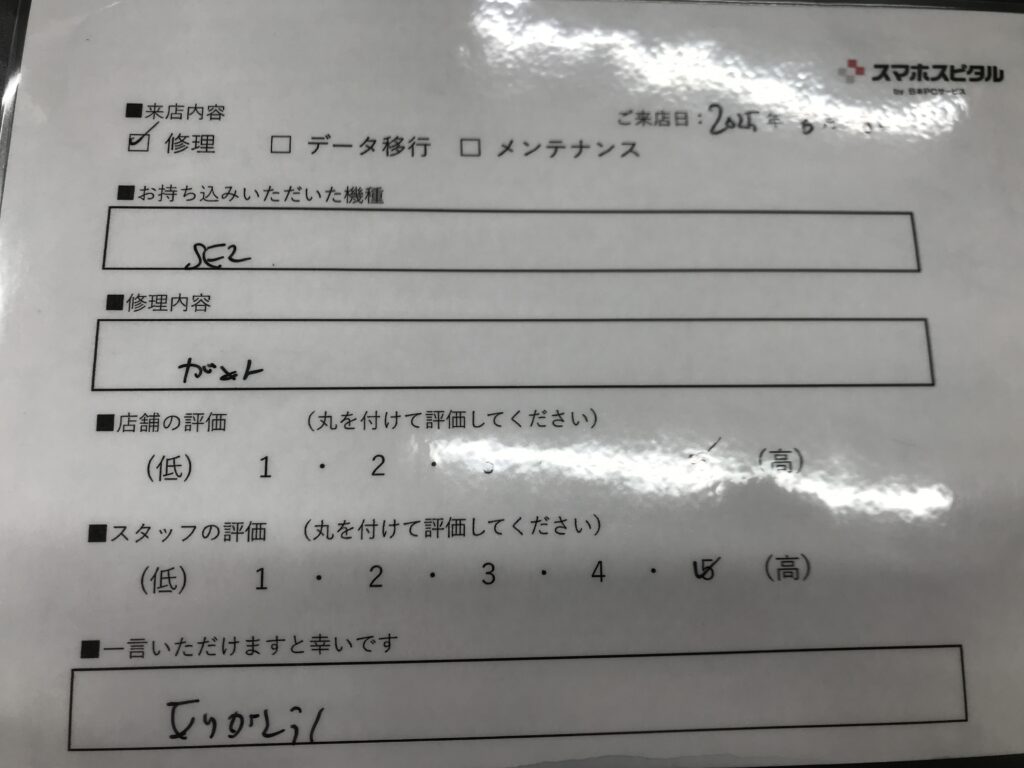 スマホスピタル
by 日本PCサービス
■来店内容
ご来店日：2025年
☑ 修理 □ データ移行 □ メンテナンス
■お持ち込みいただいた機種
SE2
■修理内容
■店舗の評価 （丸を付けて評価してください）
（低） 1 ・ 2 ・ （高）
■スタッフの評価 （丸を付けて評価してください）
（低） 1 ・ 2 ・ 3 ・ 4 ・ 5 （高）
■一言いただけますと幸いです
ありがとう